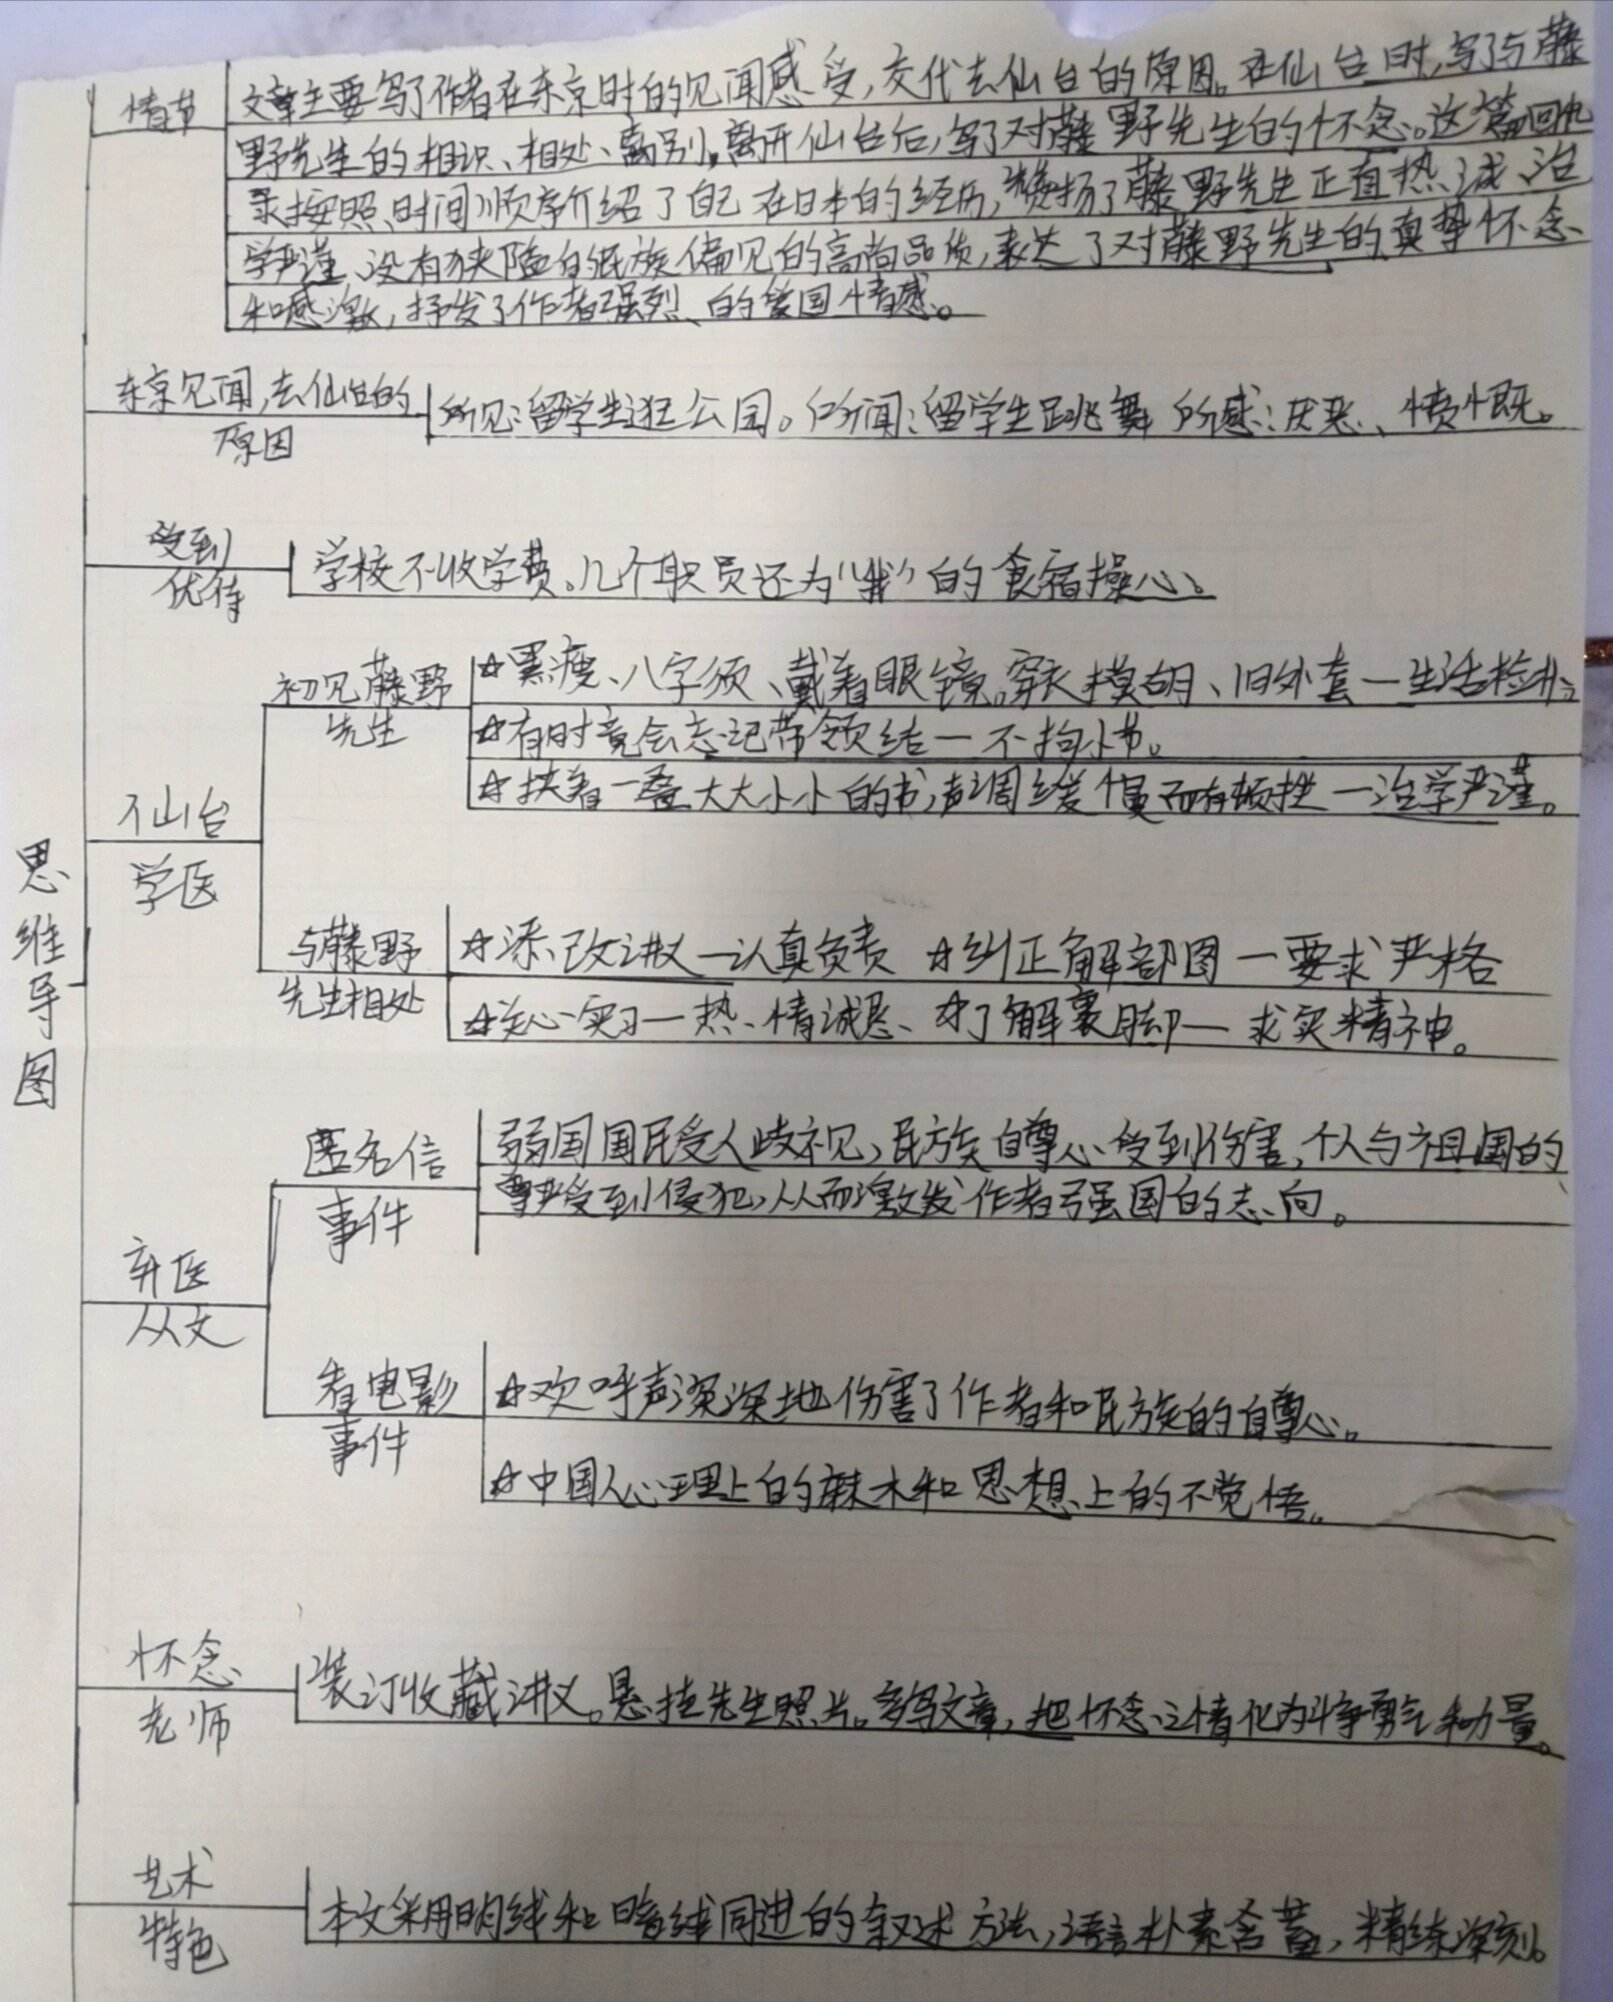 思维导图
情节
文章主要写了作者在东京时的见闻感受，交代去仙台的原因。在仙台时，写了与藤
野先生的相识、相处、离别。离开仙台后，写了对藤野先生的怀念。这篇回忆
录按照时间顺序介绍了自己在日本的经历，赞扬了藤野先生正直热诚、治
学严谨、没有狭隘的民族偏见的高尚品质，表达了对藤野先生的真挚怀念
和感激，抒发了作者强烈的爱国情感。
东京见闻，去仙台的
原因
所见：留学生逛公园。所闻：留学生跳舞 所感：厌恶、愤慨。
受到
优待
学校不收学费。几个职员还为“我”的食宿操心。
仙台
学医
初见藤野
先生
☆黑瘦、八字须、戴着眼镜。穿衣模胡、旧外套—生活检朴。
☆有时竟会忘记带领结—不拘小节。
☆挟着一叠大大小小的书，声调缓慢而有顿挫—治学严谨。
与藤野
先生相处
☆添改讲义—认真负责 ☆纠正解部图—要求严格
☆关心实习—热情诚恳、☆了解裹脚—求实精神。
弃医
从文
匿名信
事件
弱国国民受人歧视，民族自尊心受到伤害，个人与祖国的
尊严受到侵犯，从而激发作者强国的志向。
看电影
事件
☆欢呼声深深地伤害了作者和民族的自尊心。
☆中国人心理上的麻木和思想上的不觉悟。
怀念
老师
装订收藏讲义。悬挂先生照片。多写文章，把怀念之情化为斗争勇气和力量。
艺术
特色
本文采用明线和暗线同进的叙述方法，语言朴素含蓄，精练深刻。